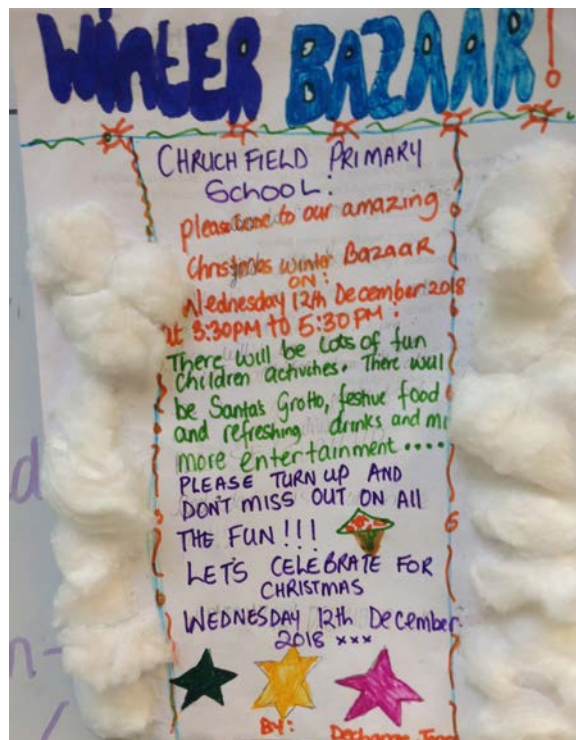 WINTER BAZAAR!
CHRUCHFIELD PRIMARY
SCHOOL!
please come to our amazing
Christmas Winter BAZAAR
ON:
Wednesday 12th December 2018
at 3:30PM to 5:30PM!
There will be lots of fun
Children activities. There will
be Santa's Grotto, festive food
and refreshing drinks and
more entertainment ....
PLEASE TURN UP AND
DON'T MISS OUT ON ALL
THE FUN!!!
LET'S CELEBRATE FOR
CHRISTMAS
WEDNESDAY 12th December
2018 xxx
By: